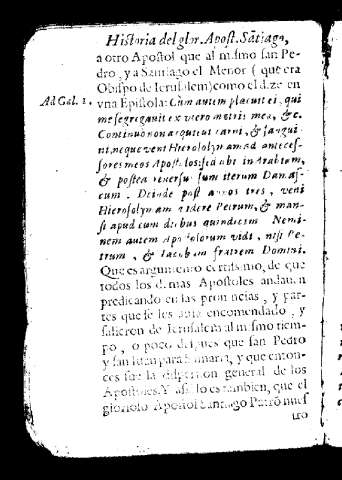 Historia del glor. Apost. Sātiago,
a otro Apostol que al mismo san Pe-
dro, y a Santiago el Menor (que era
Obispo de Ierusalem) como el dize en
Ad Gal. 1. vna Epistola: Cùm autem placuit ei, qui
me segregauit ex vtero matris meæ, &c.
Continuo non acquieui carni, & sangui-
ni, neque veni Hierosolymam ad anteces-
sores meos Apostolos: sed abij in Arabiam,
& postea reuersus sum iterum Damas-
cum. Deinde post annos tres, veni
Hierosolymam videre Petrum, & man-
si apud eum diebus quindecim. Nemi-
nem autem Apostolorum vidi, nisi Pe-
trum, & Iacobum fratrem Domini.
Que es argumento certisimo, de que
todos los demas Apostoles andauan
predicando en las prouincias, y par-
tes que se les auia encomendado, y
salieron de Ierusalem al mismo tiem-
po, o poco despues que san Pedro
y san Iuan para Samaria, y que enton-
ces fue la dispersion general de los
Apostoles. Y assi lo es tambien, que el
glorioso Apostol Santiago Patrō nues
tro